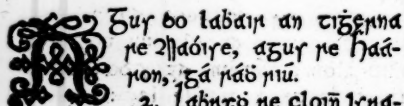 AGus do labair an tiġerna
re Maóise, agus re Haá-
ron, gá ráḋ riú.
2. re cloinn Isra-